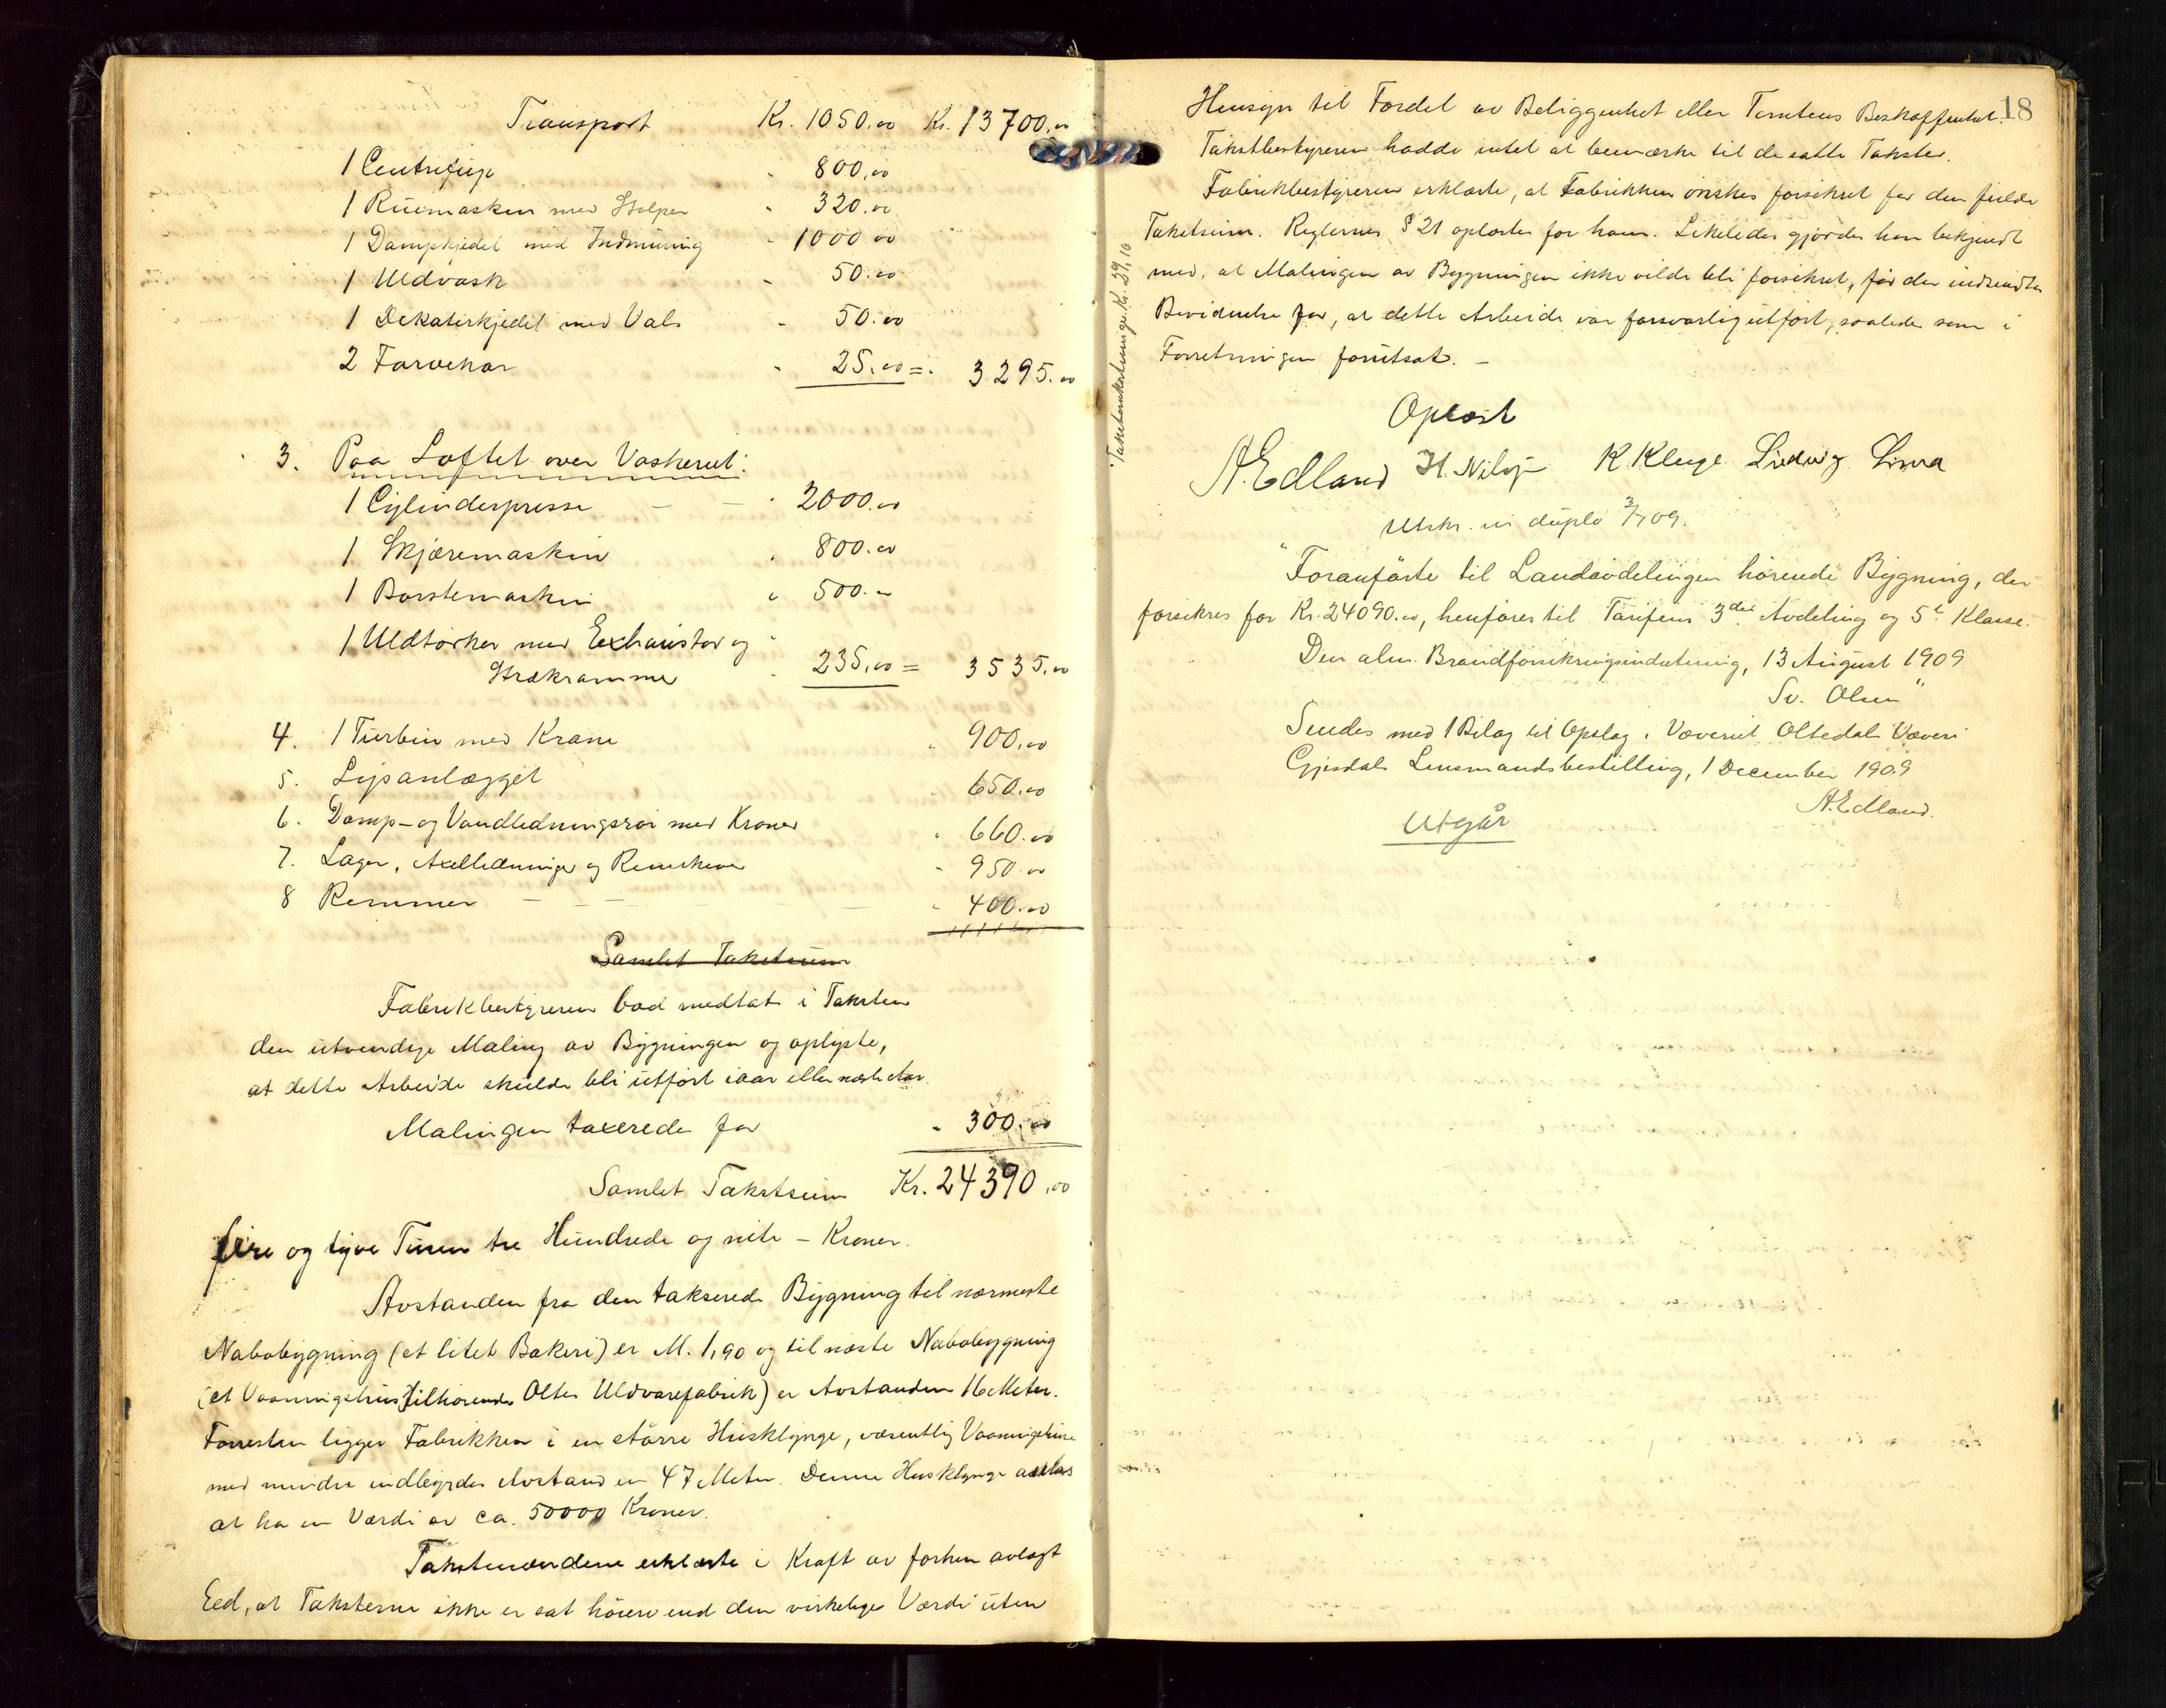 Transport Kr. 1050.00 Kr. 13700.00
1 Centrifuge " 800.00
1 Ruemaskin med Stolper " 320.00
1 Dampkjedel med Indmuring " 1000.00
1 Uldvask " 50.00
1 Dekaterkjedel med Vals " 50.00
2 Farvekar " 25.00 = " 3295.00
3. Paa Loftet over Vaskeriet:
1 Cylinderpresse — — " 2000.00
1 Skjæremaskin " 800.00
1 Børstemaskin " 500.00
1 Uldtørker med Exhaustor og
Strækramme " 235.00 = 3535.00
4. 1 Turbin med Krane " 900.00
5. Lysanlægget " 650.00
6. Damp- og Vandledningsrør med Kraner " 660.00
7. Lager, Axelledninger og Remskiver " 950.00
8 Remmer — — — — " 400.00
Samlet Takstsum
Fabrikbestyreren bad medtat i Taksten
den utvendige Maling av Bygningen og oplyste,
at dette Arbeide skulde bli utført iaar eller næste Aar.
Malingen taxeredes for " 300.00
Samlet Takstsum Kr. 24390.00
fire og tyve Tusen tre Hundrede og niti – Kroner.
Avstanden fra den takserede Bygning til nærmeste
Nabobygning (et litet Bakeri) er M. 1,90 og til næste Nabobygning
(et Vaaningshus tilhørende Oltes Uldvarefabrik) er Avstanden 16 Meter.
Forresten ligger Fabrikken i en større Husklynge, væsentlig Vaaningshuse
med mindre indbyrdes Avstand en 47 Meter. Denne Husklynge antas
at ha en Værdi av ca. 50000 Kroner.
Takstmændene erklærte i Kraft av forhen avlagt
Eed, at Taksterne ikke er sat høiere end den virkelige Værdi uten
18
Hensyn til Fordel av Beliggenhet eller Tomtens Beskaffenhet.
Takstbestyreren hadde intet at bemærke til de satte Takster.
Fabrikbestyreren erklærte, at Fabrikken ønskes forsikret for den fulde
Takstsum. Reglernes § 21 oplæstes for ham. Likeledes gjordes han bekjendt
med, at Malingen av Bygningen ikke vilde bli forsikret, før der indsendtes
Bevidnelse for, at dette Arbeide var forsvarlig utført, saaledes som i
Forretningen forutsat. –
Takstomkostninger Kr. 29,10
Oplæst
A. Edland K. Kluge Ludvig Lima
Utskr. in duplo 3/7 09.
"Foranførte til Landavdelingen hørende Bygning, der
forsikres for Kr. 24090.00, henføres til Tarifens 3die Avdeling og 5te Klasse.
Den alm. Brandforsikringsindretning, 13 August 1909
Sv. Olsen"
Sendes med 1 Bilag til Opslag i Væveriet Oltedals Væveri
Gjesdal Lensmandsbestilling, 1 December 1909
A. Edland.
Utgår